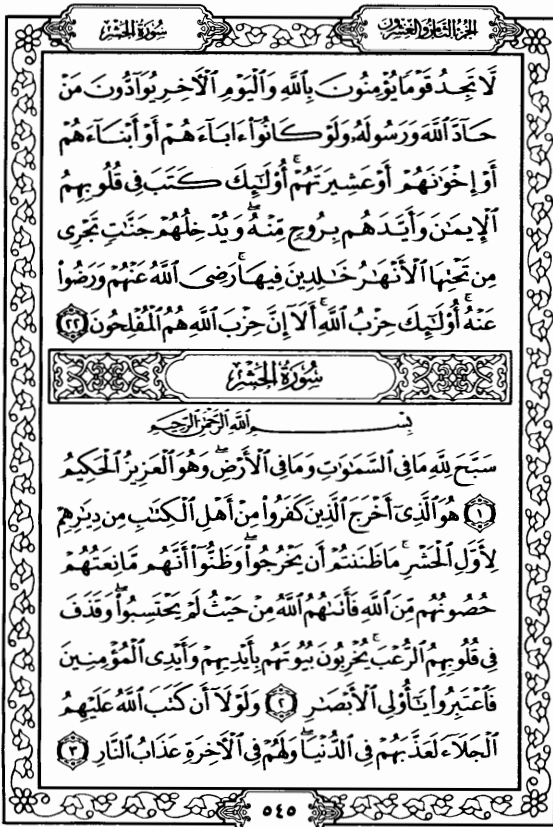 الجزء الثامن والعشرون
سورة الحشر
لَّا تَجِدُ قَوْمًا يُؤْمِنُونَ بِٱللَّهِ وَٱلْيَوْمِ ٱلْأَخِرِ يُوَآدُّونَ مَنْ
حَآدَّ ٱللَّهَ وَرَسُولَهُۥ وَلَوْ كَانُوٓا۟ ءَابَآءَهُمْ أَوْ أَبْنَآءَهُمْ
أَوْ إِخْوَٰنَهُمْ أَوْ عَشِيرَتَهُمْ ۚ أُو۟لَٰٓئِكَ كَتَبَ فِى قُلُوبِهِمُ
ٱلْإِيمَٰنَ وَأَيَّدَهُم بِرُوحٍ مِّنْهُ ۖ وَيُدْخِلُهُمْ جَنَّٰتٍ تَجْرِى
مِن تَحْتِهَا ٱلْأَنْهَٰرُ خَٰلِدِينَ فِيهَا ۚ رَضِىَ ٱللَّهُ عَنْهُمْ وَرَضُوا۟
عَنْهُ ۚ أُو۟لَٰٓئِكَ حِزْبُ ٱللَّهِ ۚ أَلَآ إِنَّ حِزْبَ ٱللَّهِ هُمُ ٱلْمُفْلِحُونَ ٢٢
سُورَةُ الحَشْرِ
بِسْمِ ٱللَّهِ ٱلرَّحْمَٰنِ ٱلرَّحِيمِ
سَبَّحَ لِلَّهِ مَا فِى ٱلسَّمَٰوَٰتِ وَمَا فِى ٱلْأَرْضِ ۖ وَهُوَ ٱلْعَزِيزُ ٱلْحَكِيمُ
١ هُوَ ٱلَّذِىٓ أَخْرَجَ ٱلَّذِينَ كَفَرُوا۟ مِنْ أَهْلِ ٱلْكِتَٰبِ مِن دِيَٰرِهِمْ
لِأَوَّلِ ٱلْحَشْرِ ۚ مَا ظَنَنتُمْ أَن يَخْرُجُوا۟ ۖ وَظَنُّوٓا۟ أَنَّهُم مَّانِعَتُهُمْ
حُصُونُهُم مِّنَ ٱللَّهِ فَأَتَىٰهُمُ ٱللَّهُ مِنْ حَيْثُ لَمْ يَحْتَسِبُوا۟ ۖ وَقَذَفَ
فِى قُلُوبِهِمُ ٱلرُّعْبَ ۚ يُخْرِبُونَ بُيُوتَهُم بِأَيْدِيهِمْ وَأَيْدِى ٱلْمُؤْمِنِينَ
فَٱعْتَبِرُوا۟ يَٰٓأُو۟لِى ٱلْأَبْصَٰرِ ٢ وَلَوْلَآ أَن كَتَبَ ٱللَّهُ عَلَيْهِمُ
ٱلْجَلَآءَ لَعَذَّبَهُمْ فِى ٱلدُّنْيَا ۖ وَلَهُمْ فِى ٱلْأَخِرَةِ عَذَابُ ٱلنَّارِ ٣
٥٤٥